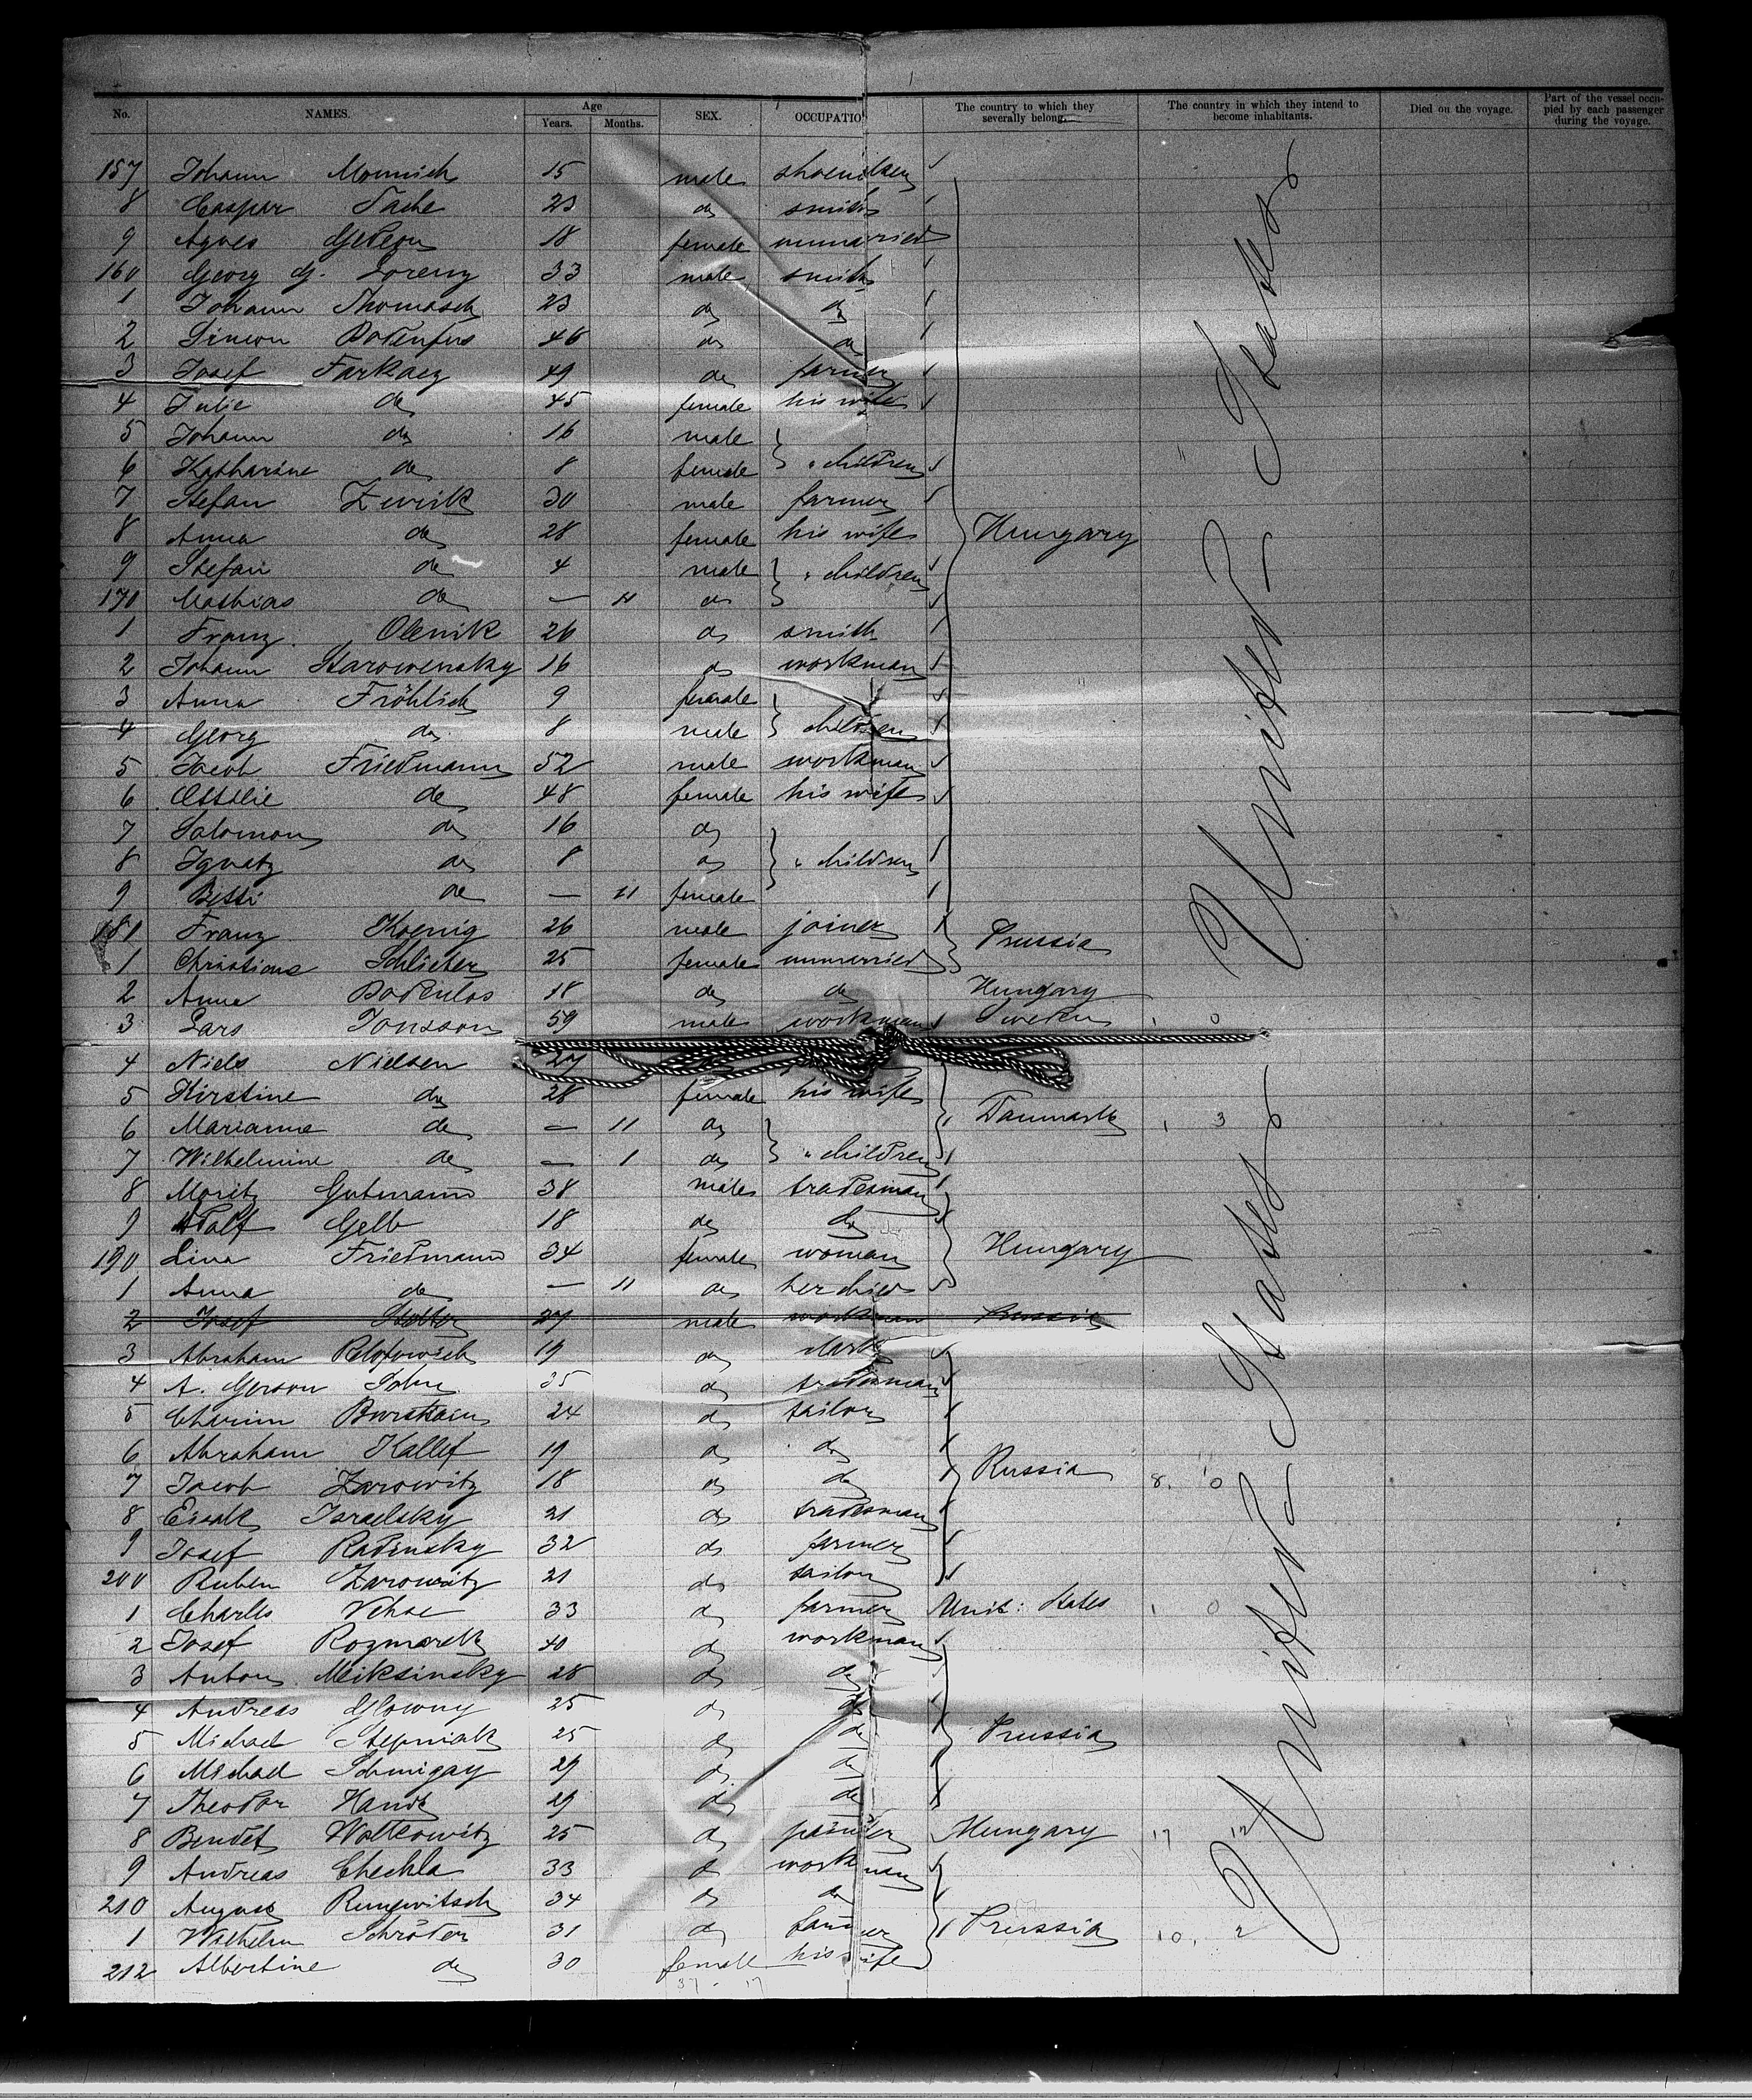 No. NAMES. Age Years. Months. SEX. OCCUPATIO The country to which they severally belong. The country in which they intend to become inhabitants. Died on the voyage. Part of the vessel occupied by each passenger during the voyage.
157 Johann Monnich 15 male
8 Caspar Tache 23 do smith
9 Agnes 18 female unmarried
160 Georg G. Lorenz 33 male smith
1 Johann Thomasch 23 do do
2 Simon 46 do do
3 Josef Farkacz 49 do farmer
4 Julie do 45 female his wife
5 Johann do 16 male
6 Katharine do 8 female " children
7 Stefan Zwick 30 male farmer
8 Anna do 28 female his wife Hungary
9 Stefan do 4 male " children
170 Mathias do — 11 do
1 Franz Olenik 26 do smith
2 Johann Starowensky 16 do workman
3 Anna Fröhlich 9 female
4 Georg do 8 male children
5 Jacob Friedmann 52 male workman
6 do 48 female his wife
7 Salomon do 16 do
8 Ignatz do 8 do " children
9 Betti do — 11 female
181 Franz Koenig 26 male joiner Prussia
1 Christiane Schlieter 25 female unmarried
2 Anna 18 do do Hungary
3 Lars Jonsson 59 male workman Sweden 1 0
4 Niels Nielsen 27
5 Kirstine do 28 female his wife
6 Marianne do — 11 do Danmark 1 3
7 Wilhelmine do — 1 do " children
8 Moritz Gutmann 38 male tradesman
9 Adolf Gelb 18 do do
190 Lina Friedmann 34 female woman Hungary
1 Anna do — 11 do her child
2 Josef 27 male workman Russia
3 Abraham 19 do clerk
4 A. Gerson 35 do tradesman
5 Charim Burstain 24 do tailor
6 Abraham Kallef 19 do do
7 Jacob Zarowitz 18 do do Russia 8. 0
8 Eisak Israelsky 21 do tradesman
9 Josef Radinsky 32 do farmer
200 Ruben Zarowitz 21 do tailor
1 Charles Vehse 33 do farmer Unit: States 1 0
2 Josef Rozmarek 40 do workman
3 Anton Meiksinsky 28 do do
4 Andreas Glowny 25 do do
5 Michael Stepniak 25 do do Prussia
6 Michael Schmigay 29 do do
7 Theodor 29 do do
8 Bendet Woltkowitz 25 do painter Hungary 17 12
9 Andreas Chechla 33 do workman
210 August Rungwitsch 34 do do
1 Wilhelm Schröder 31 do Prussia 10. 2
212 Albertine do 30 female his wife
37 - 17
United States
United States